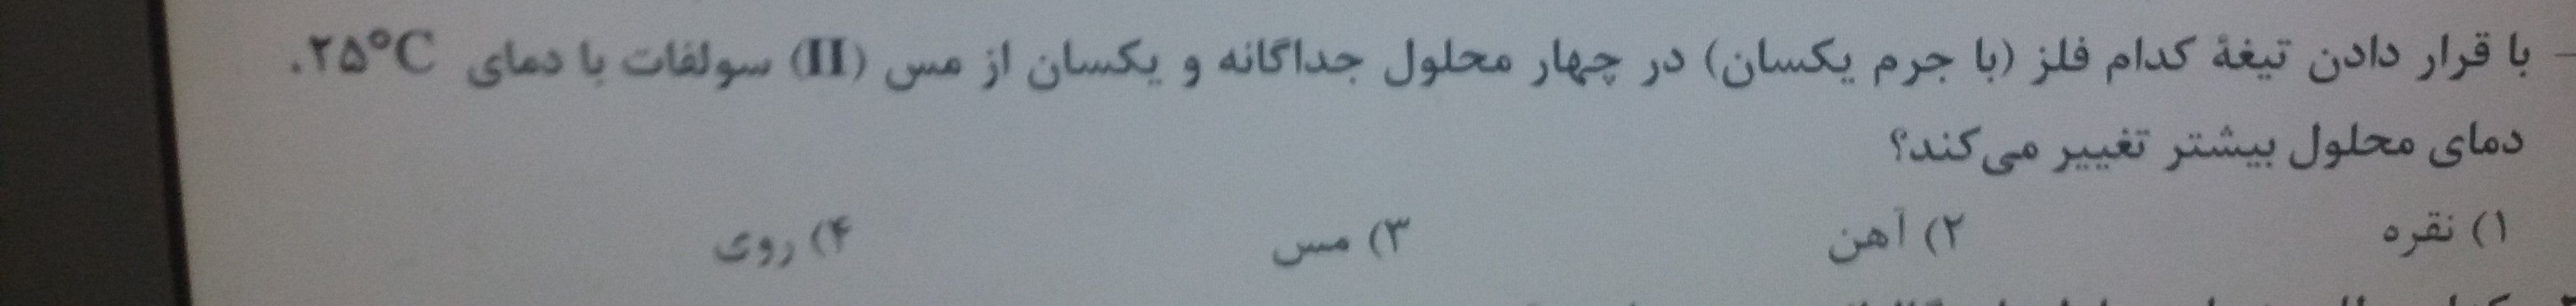 - با قرار دادن تیغهٔ کدام فلز (با جرم یکسان) در چهار محلول جداگانه و یکسان از مس (II) سولفات با دمای ۲۵°C،
دمای محلول بیشتر تغییر می‌کند؟
۱) نقره ۲) آهن ۳) مس ۴) روی